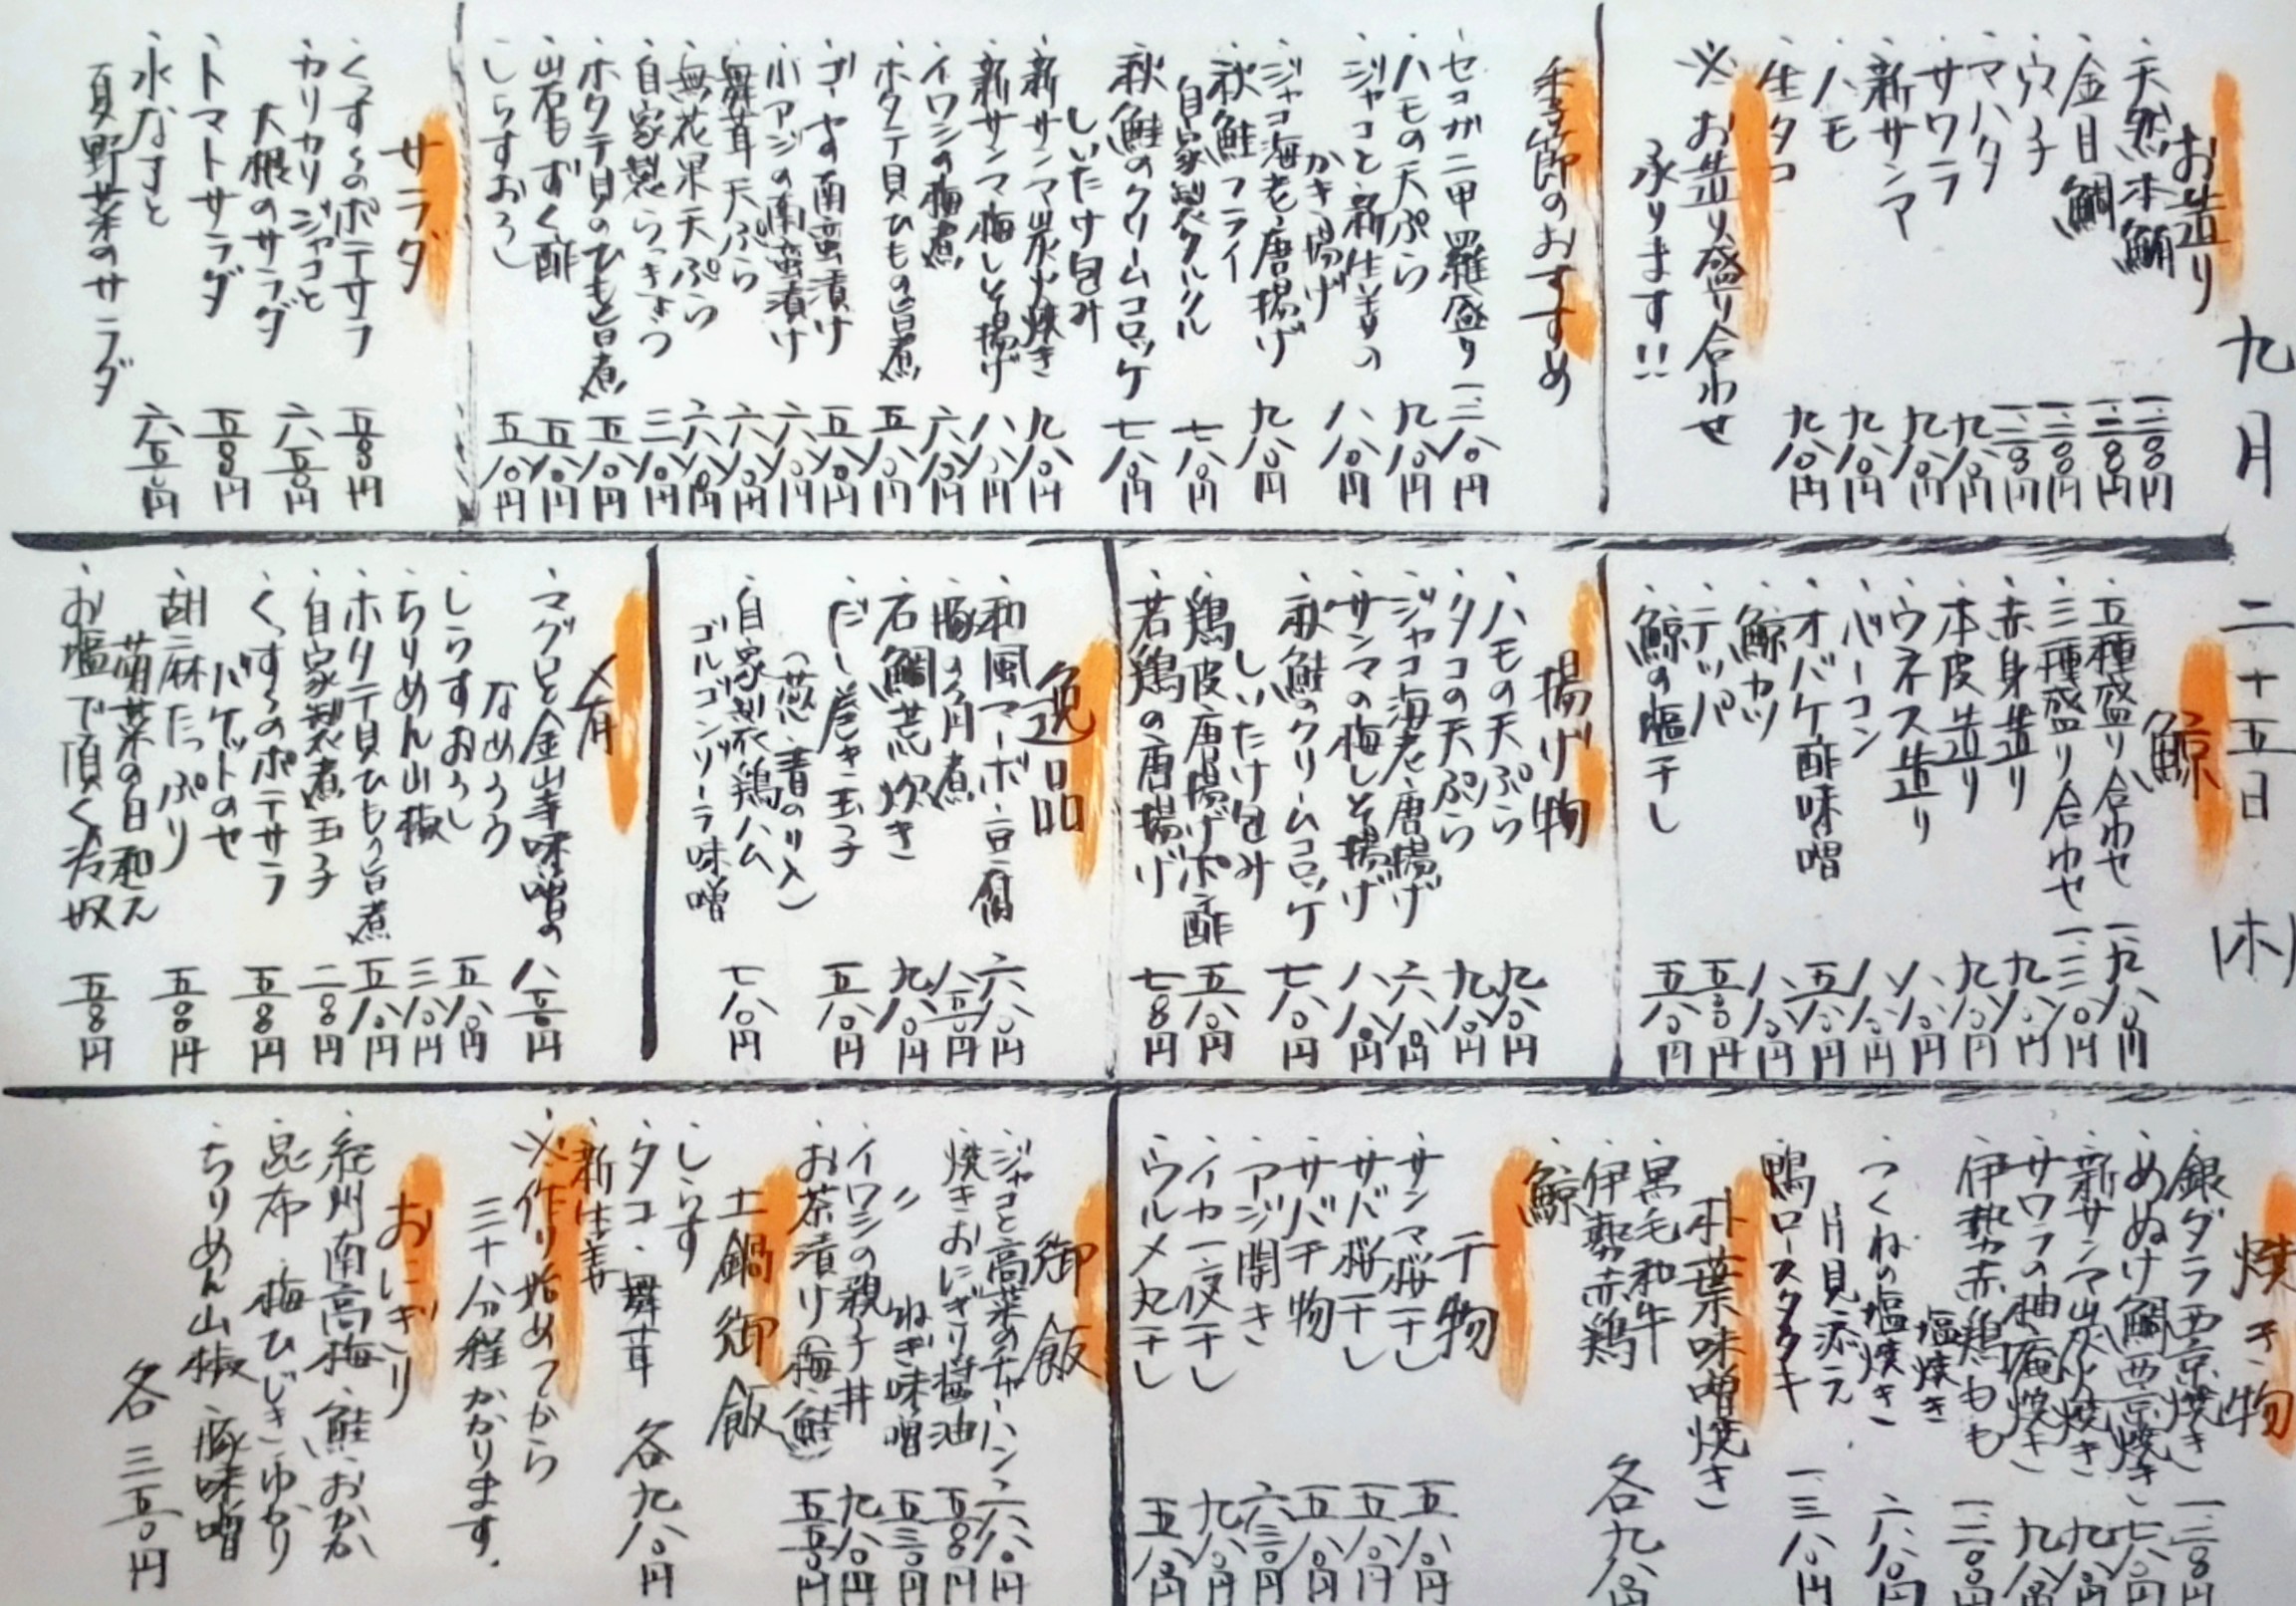 九月二十五日(木)
お造り
・天然本鮪 一二〇〇円
・金目鯛 一二〇〇円
・ウニ 一二〇〇円
・マハタ 一二〇〇円
・サワラ 九八〇円
・新サンマ 九八〇円
・ハモ 九八〇円
・生タコ 九八〇円
※お造り盛り合わせ
承ります!!
季節のおすすめ
・セコガニ甲羅盛り 一三八〇円
・ハモの天ぷら 九八〇円
・ジャコと新生姜の
かき揚げ 八八〇円
・ジャコ海老唐揚げ 九八〇円
・秋鮭フライ
自家製タルタル 七八〇円
・秋鮭のクリームコロッケ
しいたけ包み 七八〇円
・新サンマ炭火焼き 九八〇円
・新サンマ梅しそ揚げ 八八〇円
・イワシの梅煮 六八〇円
・ホタテ貝ひもの旨煮 五八〇円
・ゴーヤの南蛮漬け 五八〇円
・小アジの南蛮漬け 六八〇円
・舞茸天ぷら 六八〇円
・無花果天ぷら 六八〇円
・自家製らっきょう 三八〇円
・ホタテ貝のひも旨煮 五八〇円
・岩もずく酢 五八〇円
・しらすおろし 五八〇円
サラダ
・くっすんのポテサラ 五五〇円
・カリカリジャコと
大根のサラダ 六五〇円
・トマトサラダ 五五〇円
・水なすと
夏野菜のサラダ 六五〇円
鯨
・五種盛り合わせ 一九八〇円
・三種盛り合わせ 一三八〇円
・赤身造り 九八〇円
・本皮造り 九八〇円
・ウネス造り 八八〇円
・ベーコン 八八〇円
・オバケ酢味噌 五八〇円
・鯨カツ 八八〇円
・テッパ 五五〇円
・鯨の塩干し 五八〇円
揚げ物
・ハモの天ぷら 九八〇円
・タコの天ぷら 九八〇円
・ジャコ海老唐揚げ 六八〇円
・サンマの梅しそ揚げ 八八〇円
・秋鮭のクリームコロッケ
しいたけ包み 七八〇円
・鶏皮唐揚げポン酢 五八〇円
・若鶏の唐揚げ 七八〇円
逸品
・和風マーボー豆腐 六八〇円
・豚の角煮 八五〇円
・石鯛荒炊き 九八〇円
・だし巻き玉子
(葱・青のり入) 五八〇円
・自家製鶏ハム
ゴルゴンゾーラ味噌 七八〇円
〆肴
・マグロと金山寺味噌の
なめろう 八五〇円
・しらすおろし 五八〇円
・ちりめん山椒 三八〇円
・ホタテ貝ひもの旨煮 五八〇円
・自家製煮玉子 二〇〇円
・くっすんのポテサラ
バゲットのせ 五五〇円
・胡麻たっぷり
萌菜の白和え 五五〇円
・お塩で頂く冷奴 五五〇円
焼き物
・銀ダラ西京焼き 一二〇〇円
・めぬけ鯛西京焼き 七八〇円
・新サンマ炭火焼き 九八〇円
・サワラの柚庵焼き 九八〇円
・伊勢赤鶏もも
塩焼き 一二〇〇円
・つくねの塩焼き
月見添え 六八〇円
・鴨ロースタタキ 一三八〇円
朴葉味噌焼き
・黒毛和牛
・伊勢赤鶏
・鯨
各九八〇円
干物
・サンマ桜干し 五八〇円
・サバ桜干し 五八〇円
・サバ干物 五八〇円
・アジ開き 六三〇円
・イカ一夜干し 九八〇円
・ウルメ丸干し 五八〇円
御飯
・ジャコと高菜のチャーハン 六八〇円
・焼きおにぎり醤油 五〇〇円
〃 ねぎ味噌 五三〇円
・イワシの親子丼 九八〇円
・お茶漬け(梅・鮭) 五五〇円
土鍋御飯
・しらす
・タコ・舞茸 各九八〇円
・新生姜
※作り始めてから
三十分程かかります。
おにぎり
・紀州南高梅・鮭・おかか
・昆布・梅ひじき・ゆかり
・ちりめん山椒・豚味噌
各三五〇円